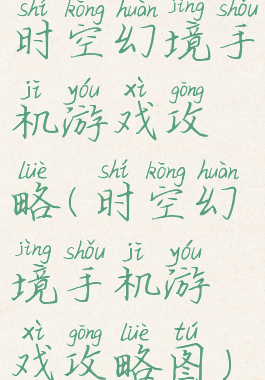 shí kōng huàn jìng shǒu
时空幻境手
jī yóu xì gōng
机游戏攻
lüè shí kōng huàn
略(时空幻
jìng shǒu jī yóu
境手机游
xì gōng lüè tú
戏攻略图)